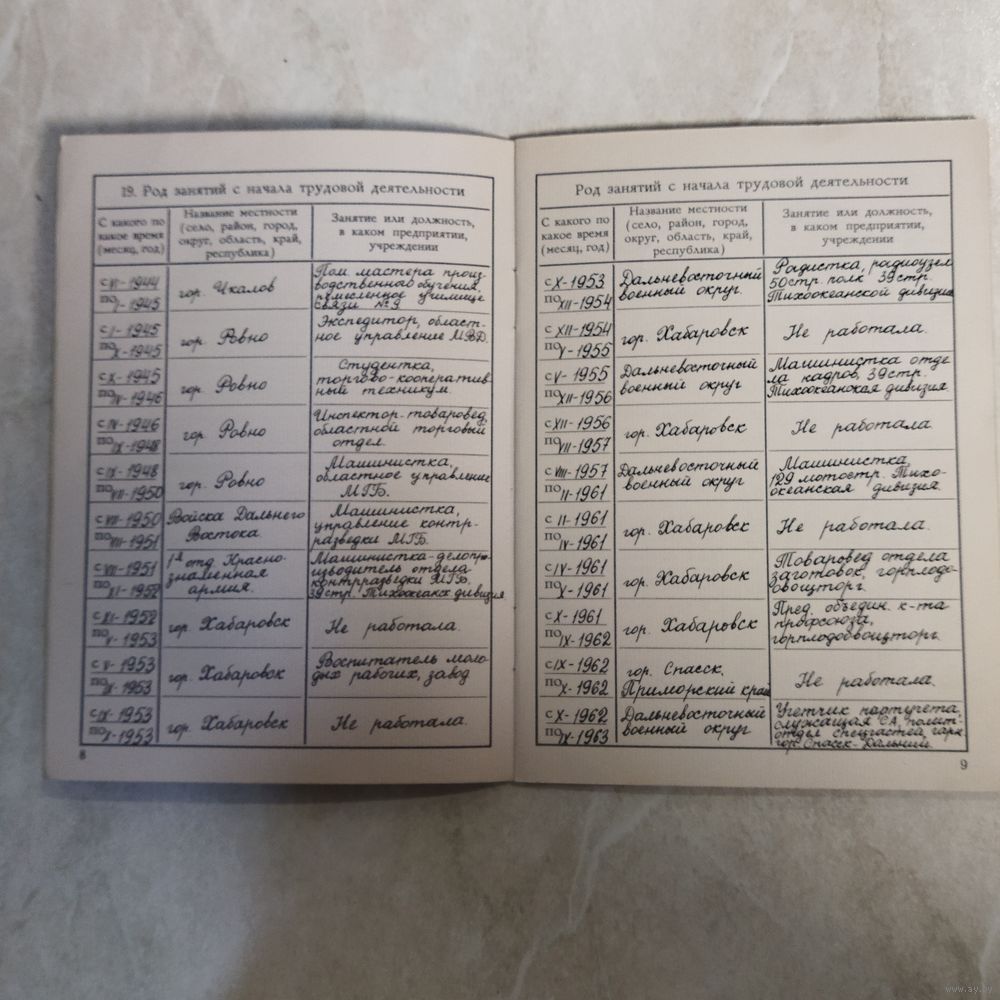 19. Род занятий с начала трудовой деятельности
С какого по какое время (месяц, год)
Название местности (село, район, город, округ, область, край, республика)
Занятие или должность, в каком предприятии, учреждении
с VI-1944
по I-1945
гор. Чкалов
Пом. мастера произ-
водственного обучения,
ремесленное училище
связи №9
с I-1945
по X-1945
гор. Ровно
Экспедитор, област-
ное управление МВД.
с X-1945
по IV-1946
гор. Ровно
Студентка,
торгово-кооператив
ный техникум.
с IV-1946
по IX-1948
гор. Ровно
Инспектор-товаровед,
областной торговый
отдел.
с IX-1948
по VII-1950
гор. Ровно
Машинистка,
областное управление
МГБ.
с VII-1950
по VII-1951
Войска Дальнего
Востока
Машинистка,
управление контр-
разведки МГБ.
с VII-1951
по XI-1952
1я отд. Красно-
знаменная
армия.
Машинистка-делопро-
изводитель отдела
контрразведки МГБ.
39 стр. Тихоокеанск. дивизия
с XI-1952
по V-1953
гор. Хабаровск
Не работала.
с V-1953
по IX-1953
гор. Хабаровск
Воспитатель моло-
дых рабочих, завод
с IX-1953
по X-1953
гор. Хабаровск
Не работала.
8
Род занятий с начала трудовой деятельности
С какого по какое время (месяц, год)
Название местности (село, район, город, округ, область, край, республика)
Занятие или должность, в каком предприятии, учреждении
с X-1953
по XII-1954
Дальневосточный
военный округ.
Радистка, радиоузел
50 стр. полк 39 стр.
Тихоокеанской дивизии
с XII-1954
по V-1955
гор. Хабаровск
Не работала.
с V-1955
по XII-1956
Дальневосточный
военный округ
Машинистка отде
ла кадров, 39 стр.
Тихоокеанская дивизия
с XII-1956
по VII-1957
гор. Хабаровск
Не работала.
с VIII-1957
по II-1961
Дальневосточный
военный округ.
Машинистка,
129 мотостр. Тихо-
океанская дивизия.
с II-1961
по IV-1961
гор. Хабаровск
Не работала.
с IV-1961
по X-1961
гор. Хабаровск
Товаровед отдела
заготовок, горплодо-
овощторг.
с X-1961
по IX-1962
гор. Хабаровск
Пред. объедин. к-та
профсоюза,
горплодоовощторг.
с IX-1962
по X-1962
гор. Спасск,
Приморский край
Не работала.
с X-1962
по IX-1963
Дальневосточный
военный округ
Учетчик партучета,
служащая СА, полит-
отдел спецчастей гарн.
гор. Спасск-Дальний.
9
www.ay.by